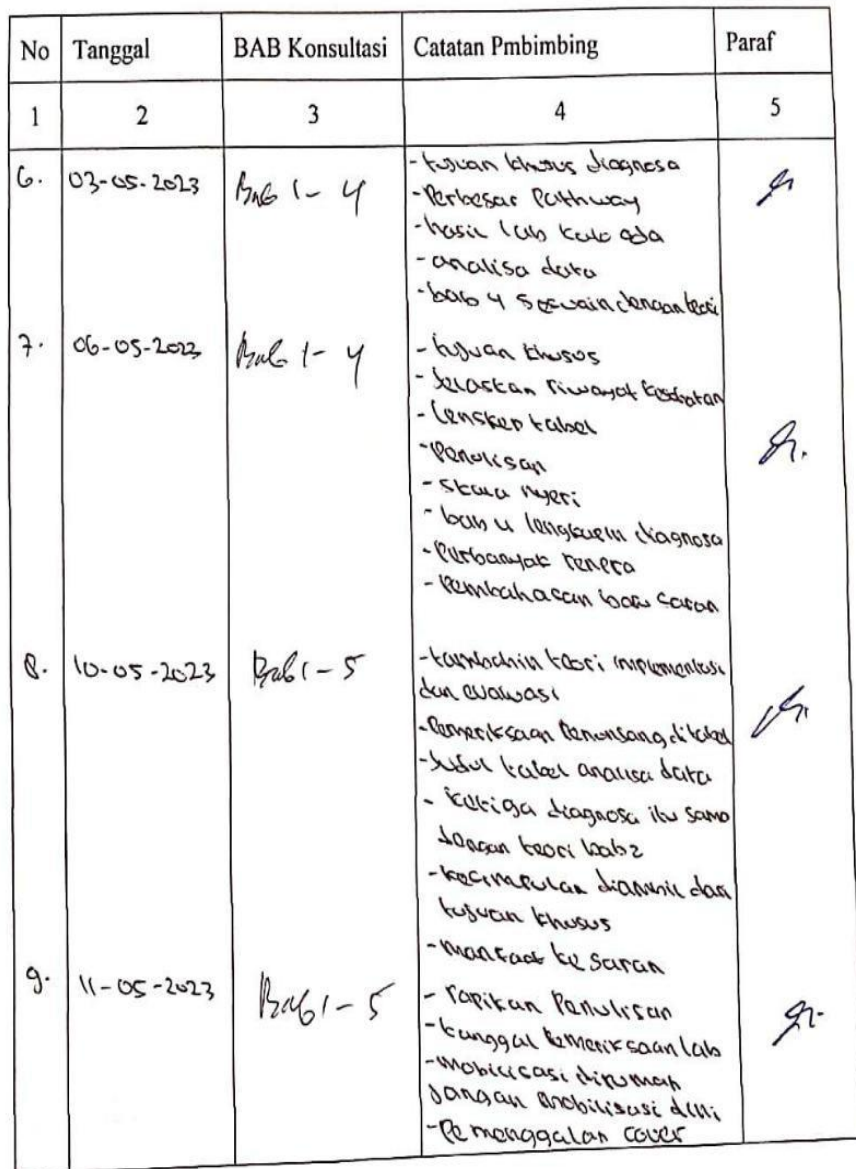 No Tanggal BAB Konsultasi Catatan Pmbimbing Paraf
1 2 3 4 5
6. 03-05-2023 Bab 1-4 - tujuan khusus diagnosa
- Perbesar Pathway
- hasil lab kalo ada
- analisa data
- bab 4 sesuain dengan teori
7. 06-05-2023 Bab 1-4 - tujuan khusus
- Jelaskan riwayat kesehatan
- lengkap tabel
- Penulisan
- skala nyeri
- bab 4 lengkapin diagnosa
- Perbanyak
- Pembahasan baru saran
8. 10-05-2023 Bab 1-5 - tambahin teori implementasi
dan evaluasi
- Pemeriksaan Penunjang ditabel
- Judul tabel analisa data
- ketiga diagnosa itu sama
dengan teori bab 2
- kesimpulan diambil dari
tujuan khusus
- manfaat ke saran
9. 11-05-2023 Bab 1-5 - rapikan Penulisan
- tanggal Pemeriksaan lab
- mobilisasi dirumah
jangan mobilisasi dini
- Pemenggalan cover